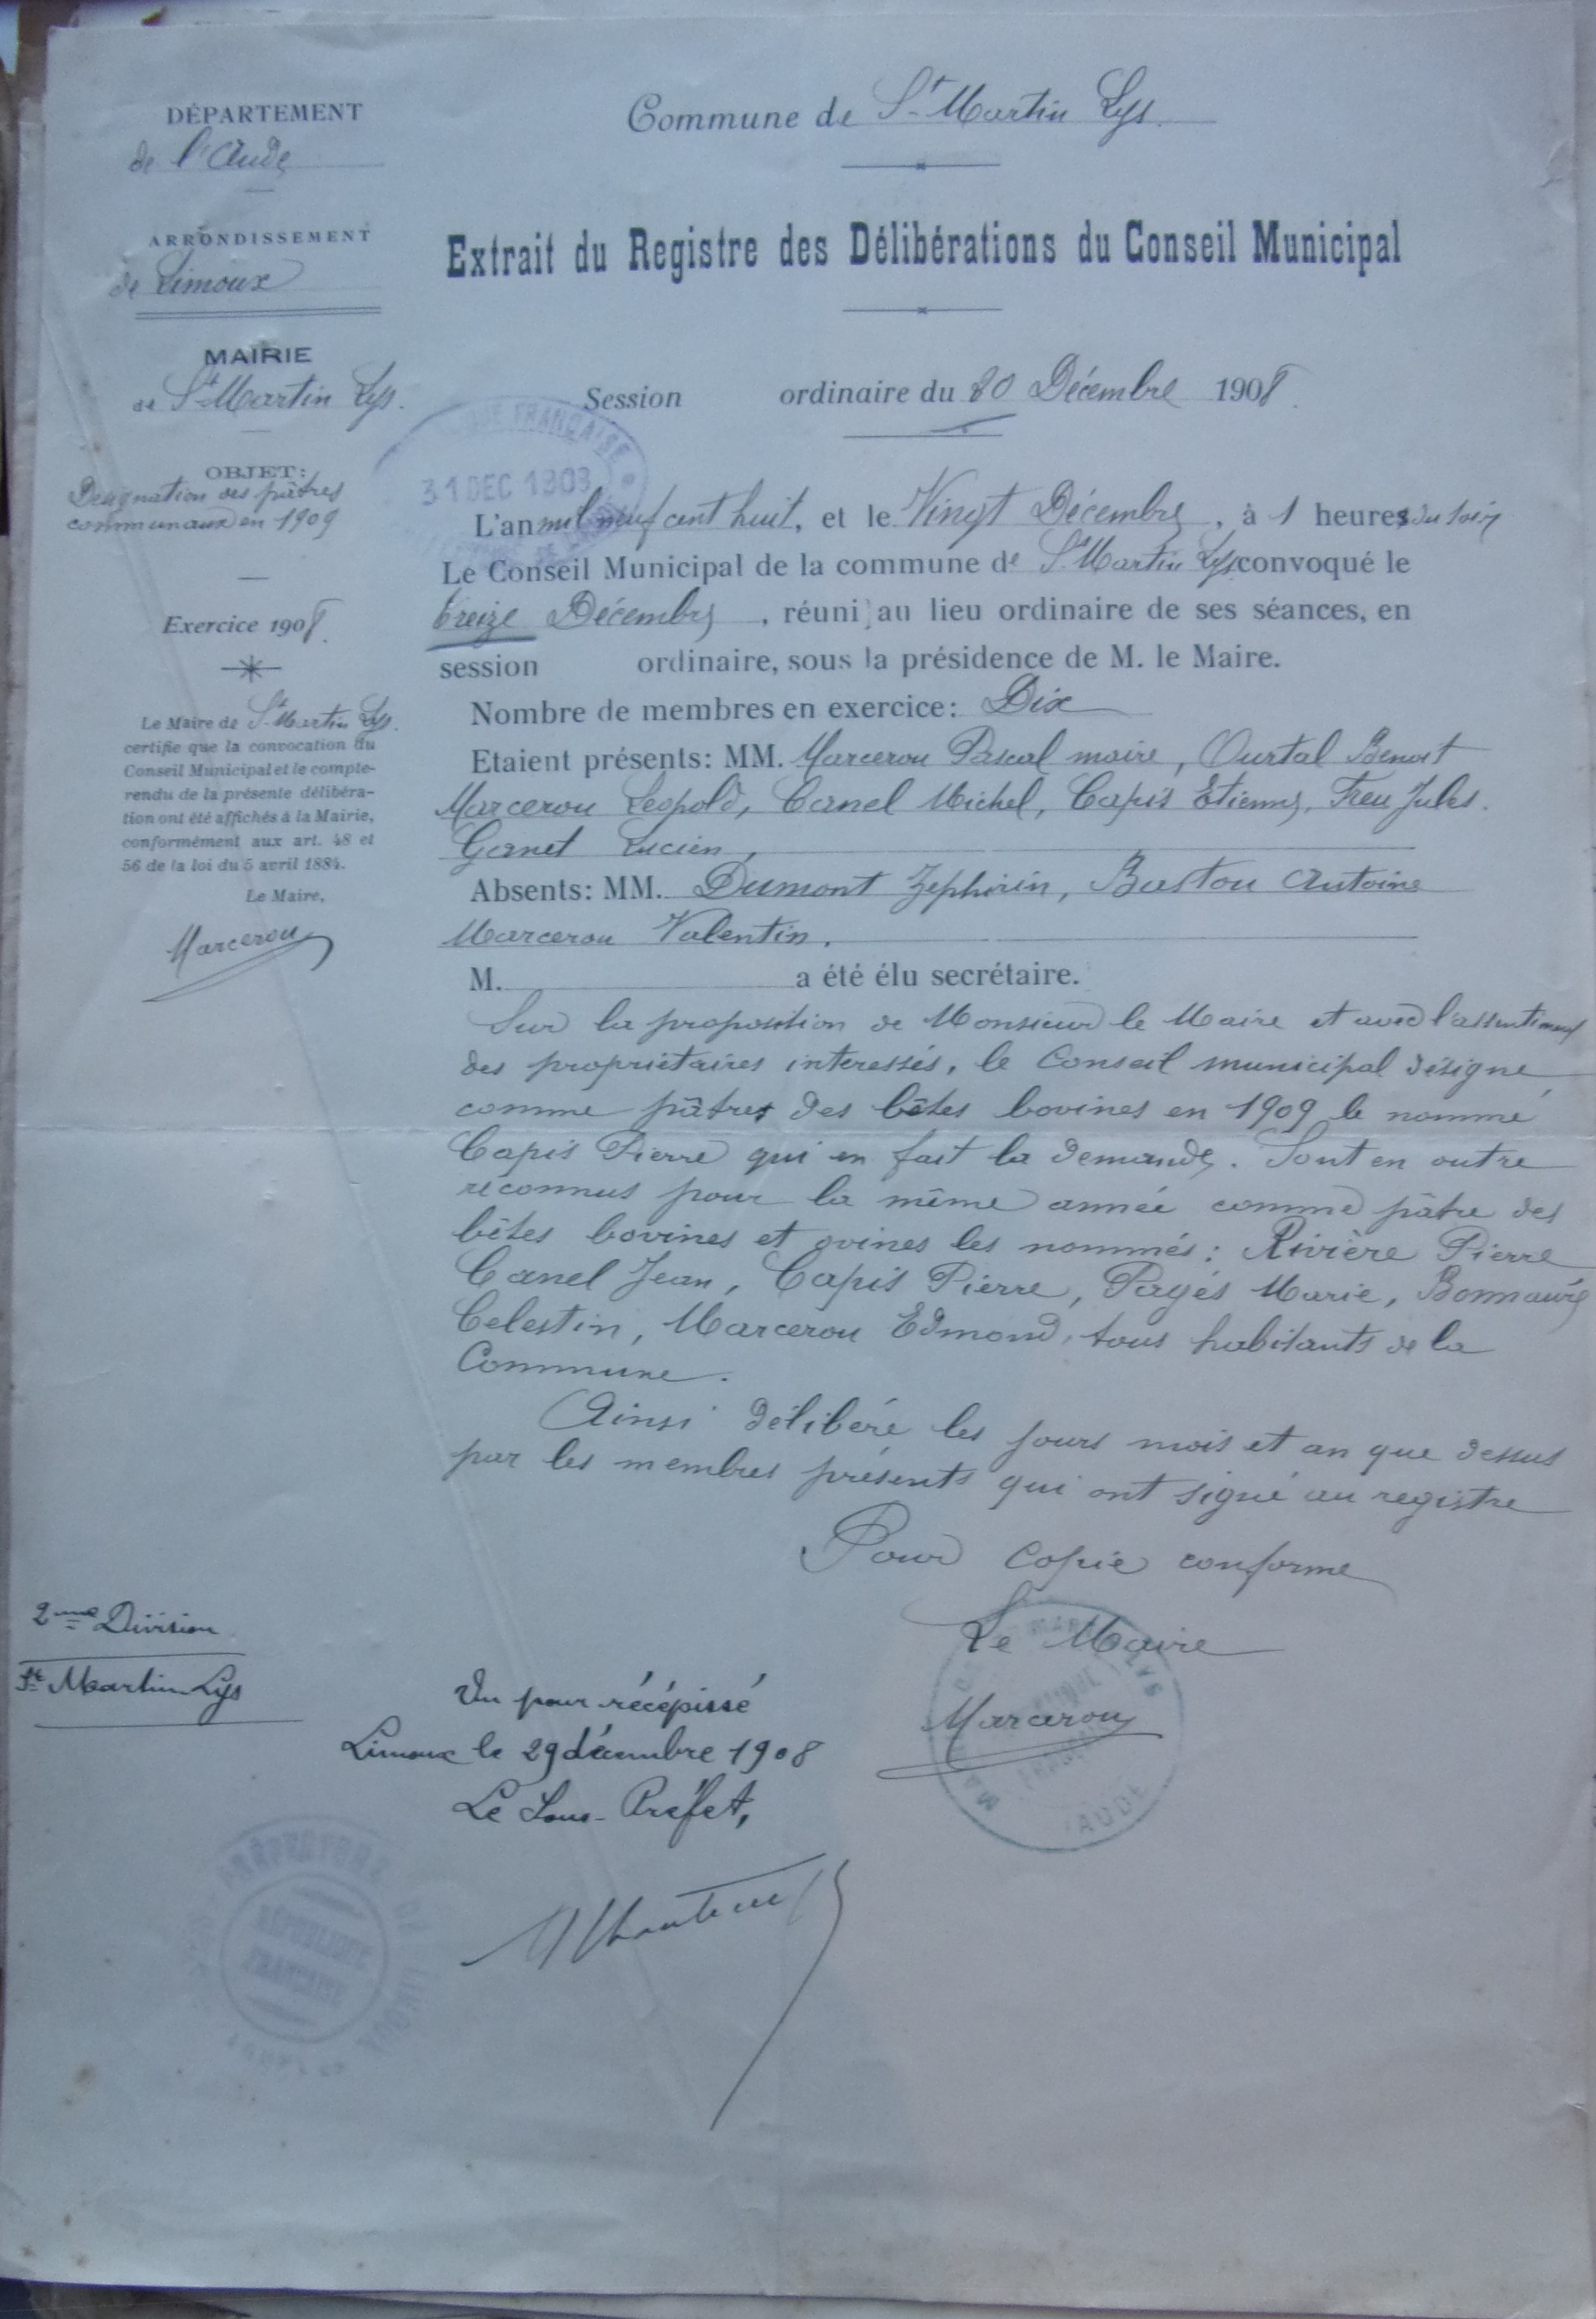 DÉPARTEMENT
de l'Aude
ARRONDISSEMENT
de Limoux
MAIRIE
de St Martin Lys.
OBJET:
Designation des pâtres
communaux en 1909
Exercice 1908.
Le Maire de St Martin Lys.
certifie que la convocation du
Conseil Municipal et le compte-
rendu de la présente délibéra-
tion ont été affichés à la Mairie,
conformément aux art. 48 et
56 de la loi du 5 avril 1884.
Le Maire,
Marcerou
Commune de St Martin Lys.
Extrait du Registre des Délibérations du Conseil Municipal
Session ordinaire du 20 Décembre 1908.
FRANÇAISE
31 DEC 1908
L'an mil neuf cent huit, et le Vingt Décembre, à 1 heures du soir
Le Conseil Municipal de la commune de St Martin Lys convoqué le
treize Décembre, réuni au lieu ordinaire de ses séances, en
session ordinaire, sous la présidence de M. le Maire.
Nombre de membres en exercice: Dix
Etaient présents: MM. Marcerou Pascal maire, Ourtal Benoit
Marcerou Leopold, Canel Michel, Capis Etienne, Feu Jules.
Ganet Lucien,
Absents: MM. Dumont Zephirin, Bastou Antoine
Marcerou Valentin.
M. a été élu secrétaire.
Sur la proposition de Monsieur le Maire et avec l'assentiment
des propriétaires interessés, le Conseil municipal désigne
comme pâtres des bêtes bovines en 1909 le nommé
Capis Pierre qui en fait la demande. Sont en outre
réconnus pour la même année comme pâtre des
bêtes bovines et ovines les nommés: Rivière Pierre
Canel Jean, Capis Pierre, Pagés Marie, Bonnaure
Celestin, Marcerou Edmond, tous habitants de la
Commune.
Ainsi délibéré les jours mois et an que dessus
par les membres présents qui ont signé au registre
Pour copie conforme
Le Maire
Marcerou
AUDE
2me Division
St Martin-Lys
Vu pour récépissé
Limoux le 29 décembre 1908
Le Sous-Préfet,
RÉPUBLIQUE
FRANÇAISE